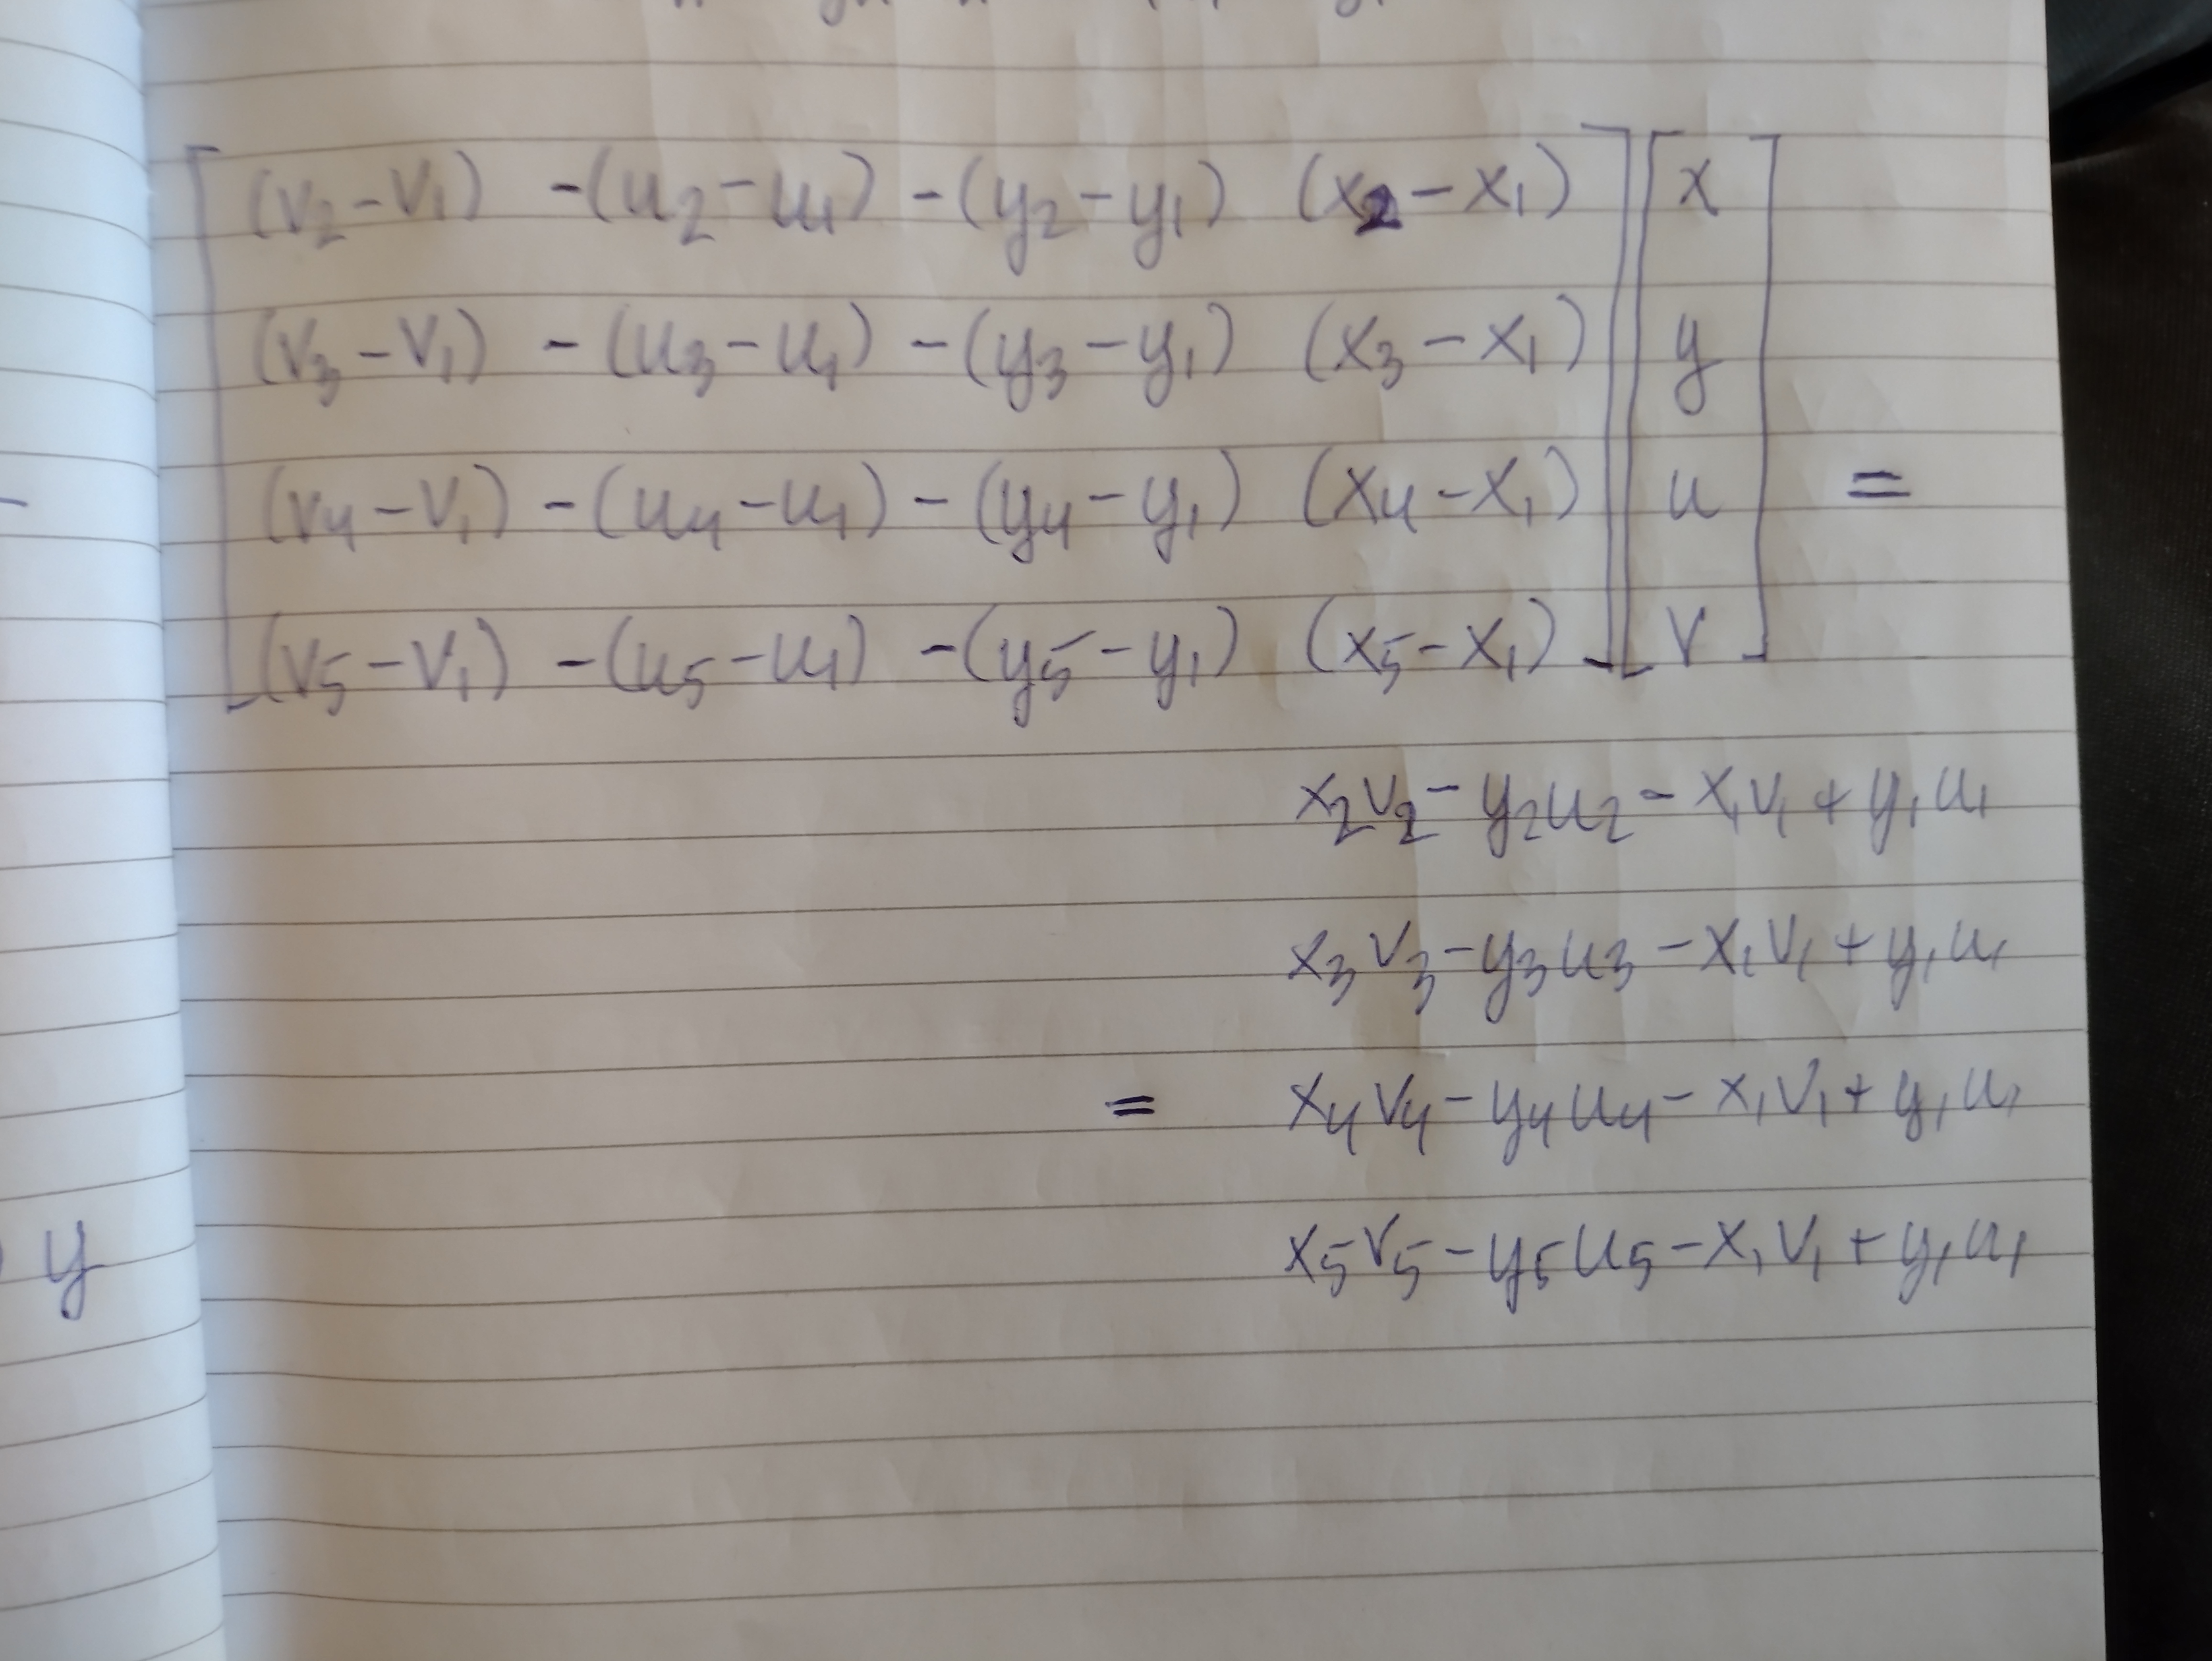 [(v₂-v₁) -(u₂-u₁) -(y₂-y₁) (x₂-x₁)] [x]
[(v₃-v₁) -(u₃-u₁) -(y₃-y₁) (x₃-x₁)] [y]
[(v₄-v₁) -(u₄-u₁) -(y₄-y₁) (x₄-x₁)] [u] =
[(v₅-v₁) -(u₅-u₁) -(y₅-y₁) (x₅-x₁)] [v]
x₂v₂-y₂u₂-x₁v₁+y₁u₁
x₃v₃-y₃u₃-x₁v₁+y₁u₁
= x₄v₄-y₄u₄-x₁v₁+y₁u₁
x₅v₅-y₅u₅-x₁v₁+y₁u₁
y